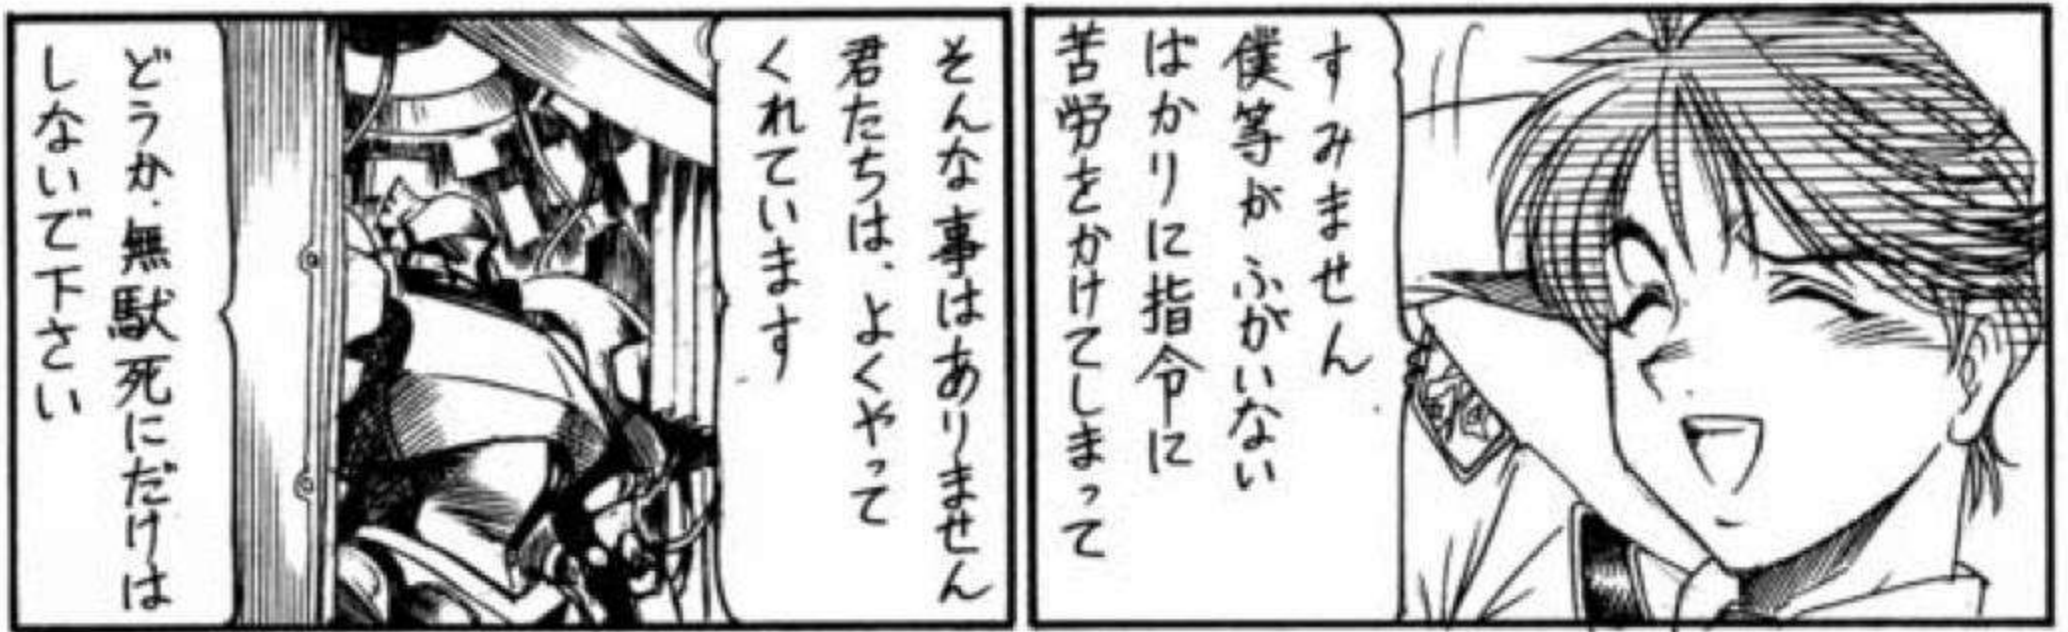 すみません
僕等がふがいない
ばかりに指令に
苦労をかけてしまって
そんな事はありません
君たちは、よくやって
くれています
どうか、無駄死にだけは
しないで下さい